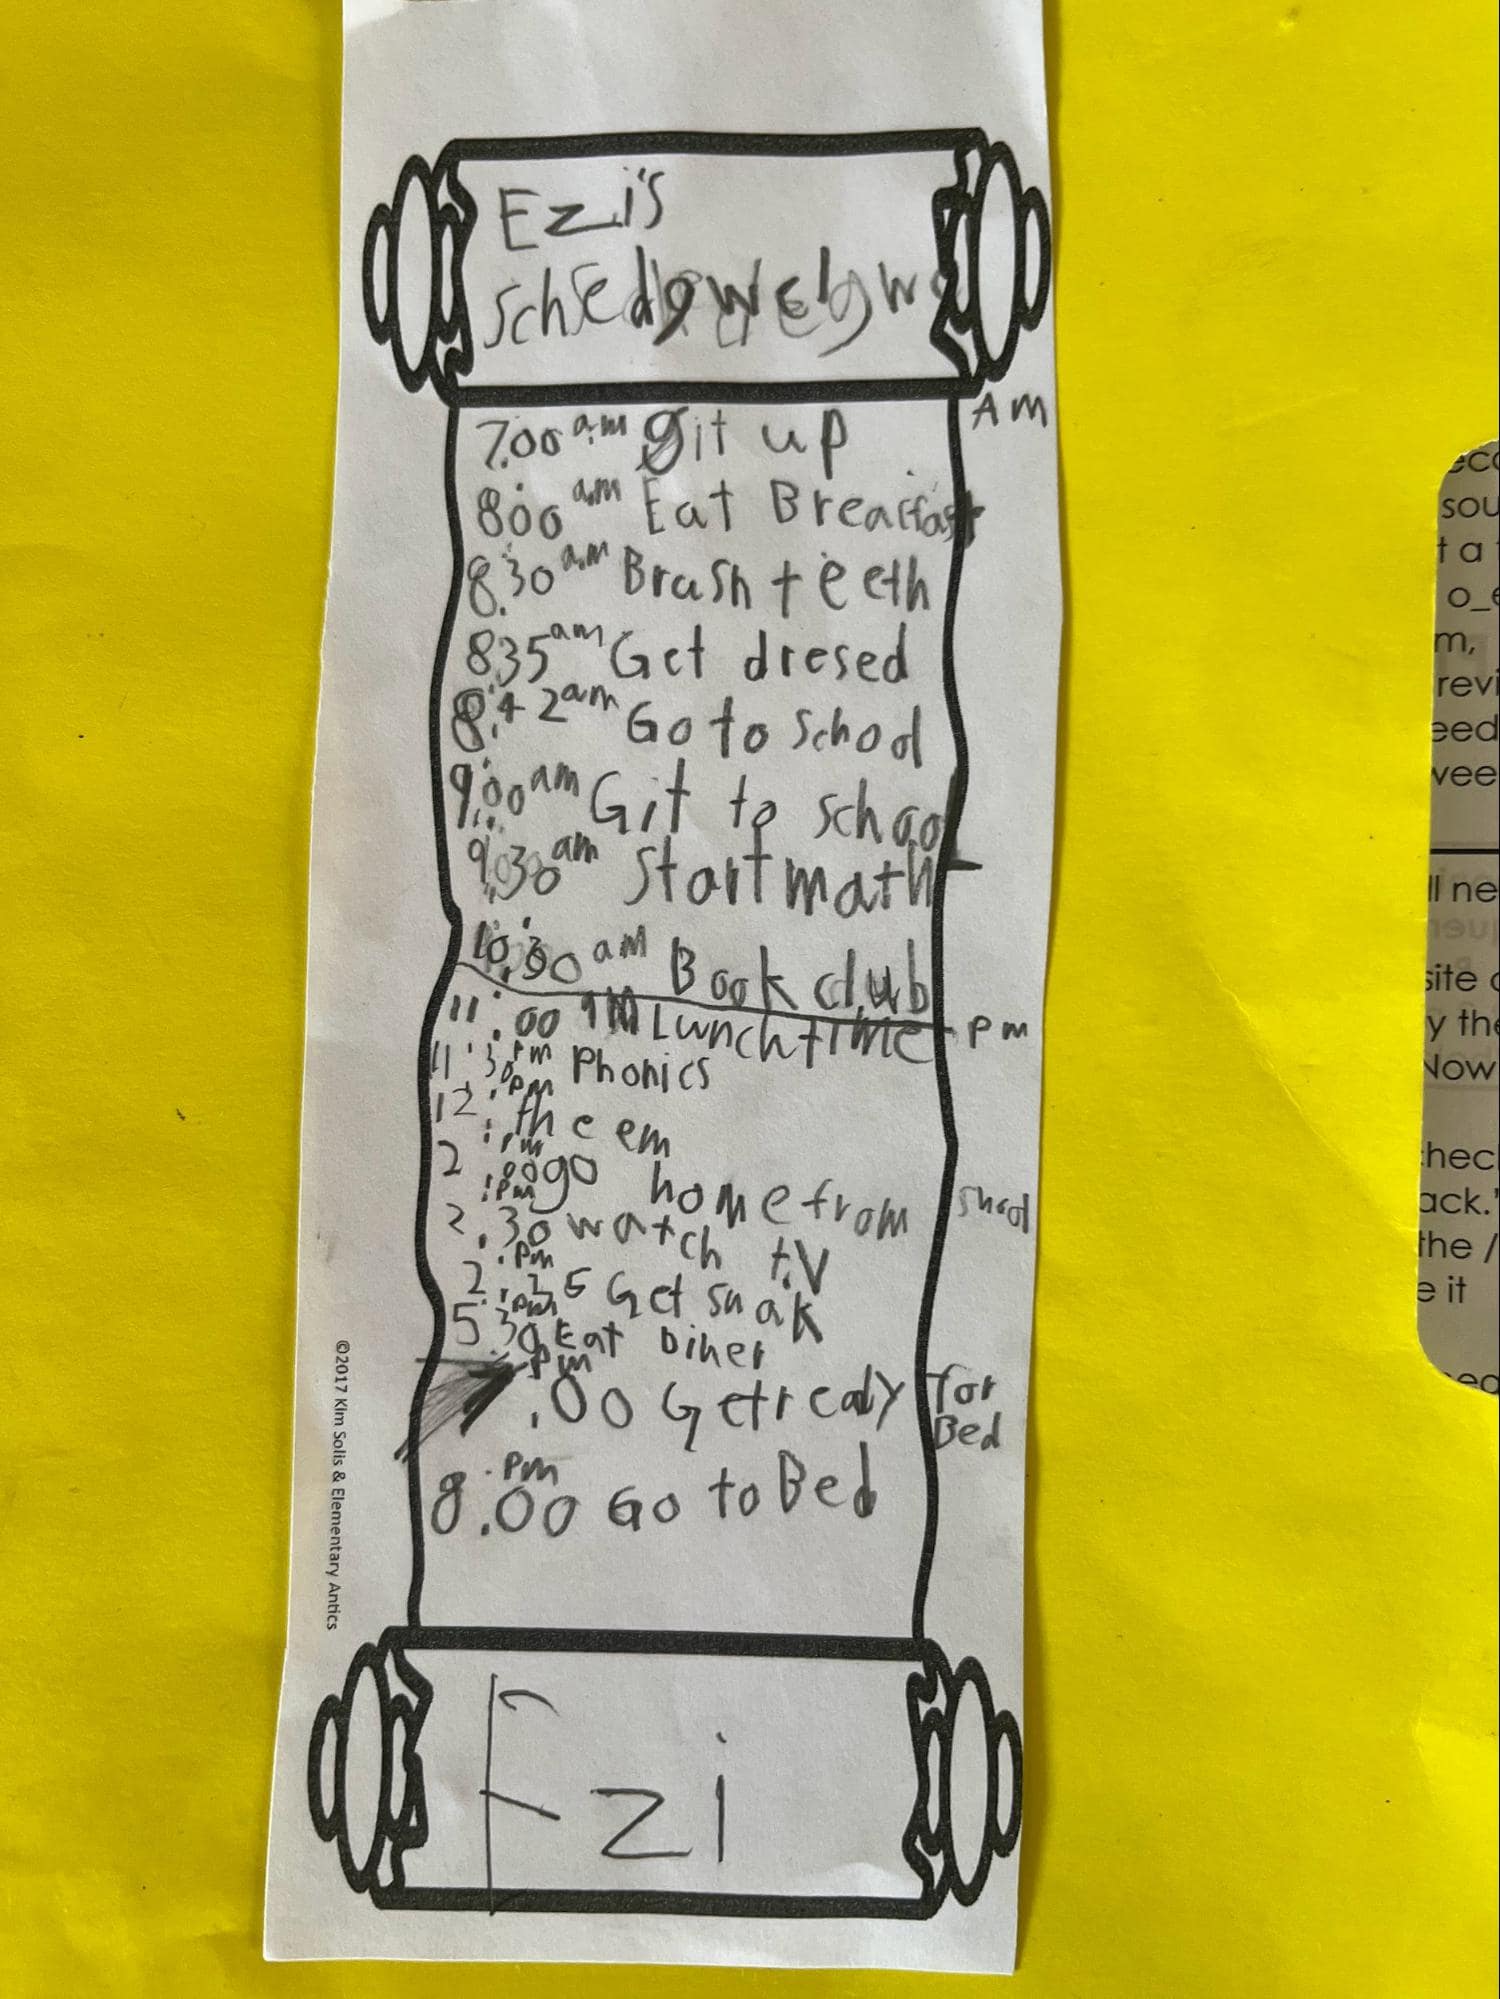 Ezi's
7:00 am git up
AM
8:00 am Eat Breakfast
8:30 am Brush teeth
8:35 am Get dresed
8:42 am Go to School
9:00 am Git to school
9:30 am Start math
10:30 am Book club
11:00 Lunch time
pm
11:30 pm Phonics
12: pm theem
2:00 pm go home from shool
2:30 pm watch t.V
2: pm Get snak
5:30 pm Eat Diner
:00 pm Get ready for
Bed
8:00 pm Go to Bed
Ezi
©2017 Kim Solis & Elementary Antics
sou
t a
o_e
m,
revi
eed
wee
ll ne
site
y the
Now
hec
ack."
the /
e it